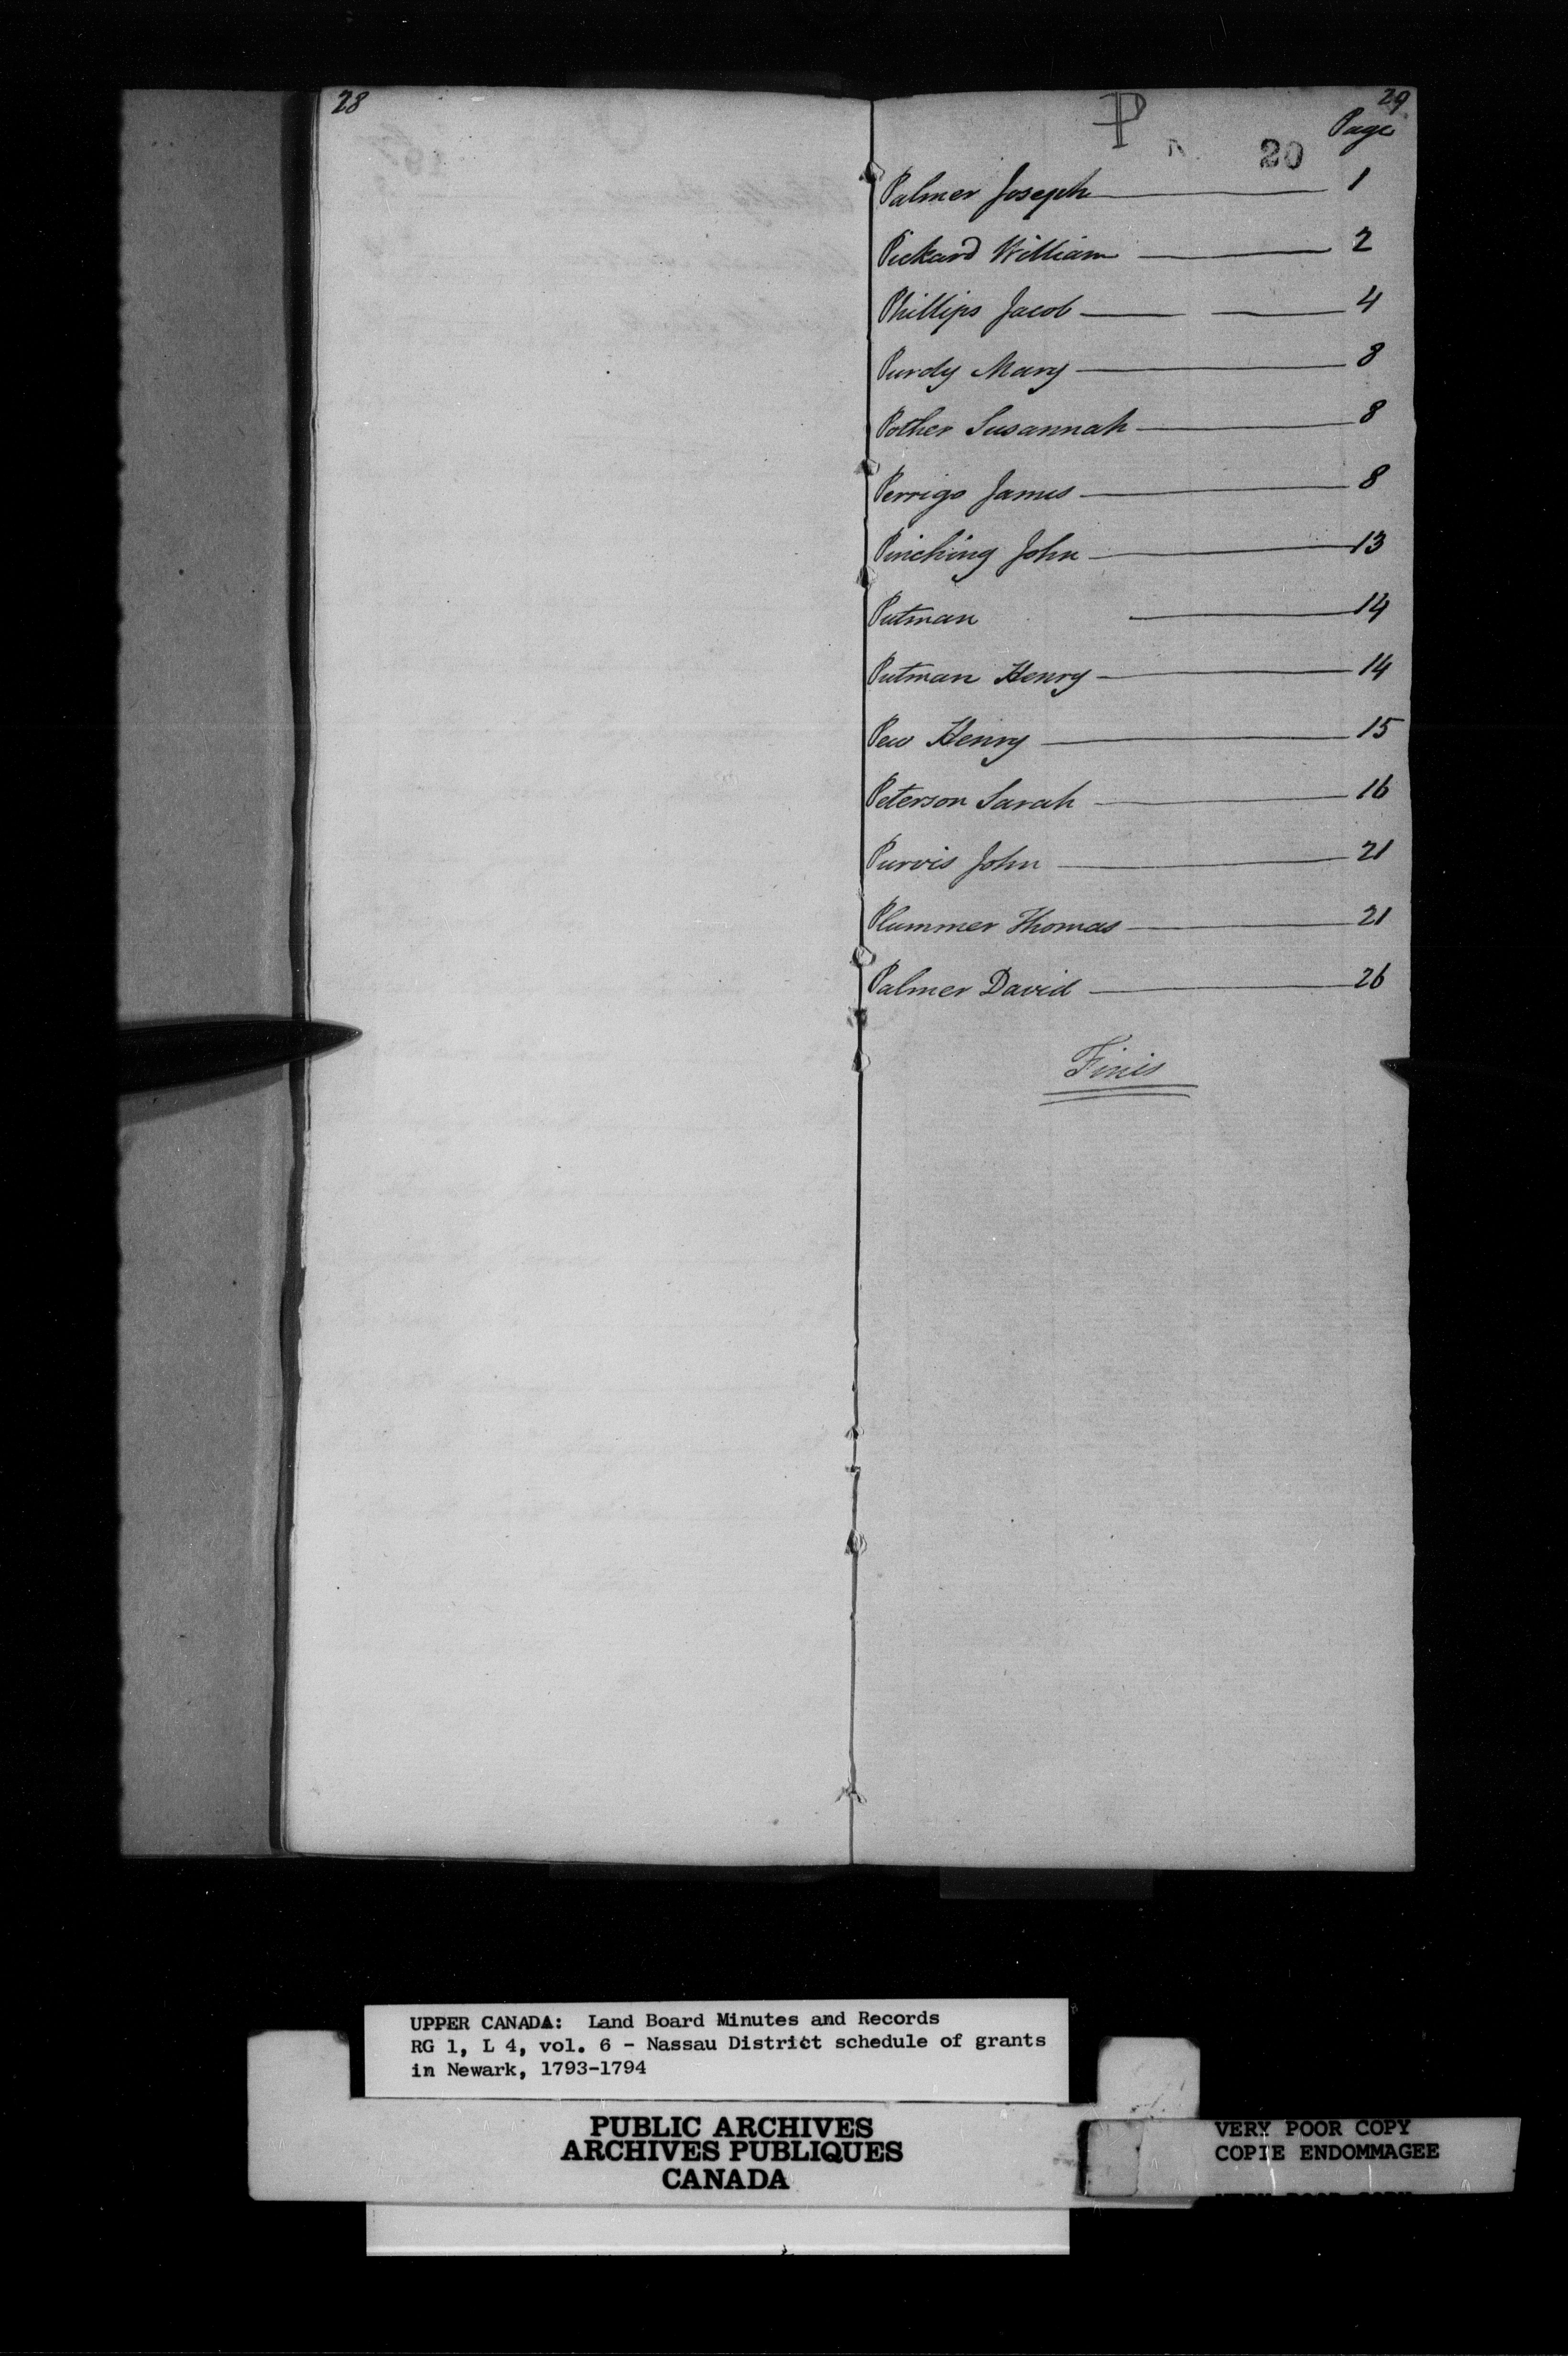 28
29
P
Page
20
Palmer Joseph 1
Pickard William 2
Phillips Jacob 4
Purdy Mary 8
Pother Susannah 8
Perrigo James 8
Pinching John 13
Putman 14
Putman Henry 14
Pew Henry 15
Peterson Sarah 16
Purvis John 21
Plummer Thomas 21
Palmer David 26
Finis
UPPER CANADA: Land Board Minutes and Records
RG 1, L 4, vol. 6 - Nassau District schedule of grants
in Newark, 1793-1794
PUBLIC ARCHIVES
ARCHIVES PUBLIQUES
CANADA
VERY POOR COPY
COPIE ENDOMMAGEE